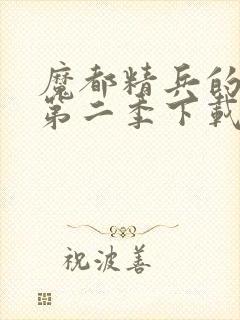 魔都精兵的
第二季下載
祝波善